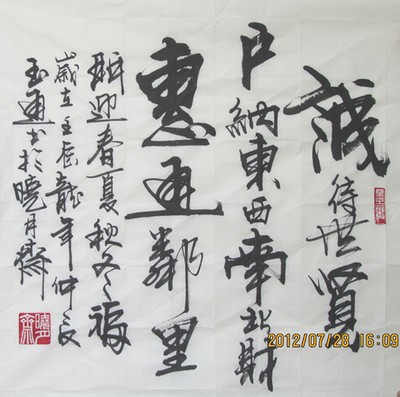 誠待世賢
户納東西南北財
惠通鄰里
迎春夏秋冬福
歲在壬辰龍年仲
玉通书於曉齋
2012/07/28 16:09